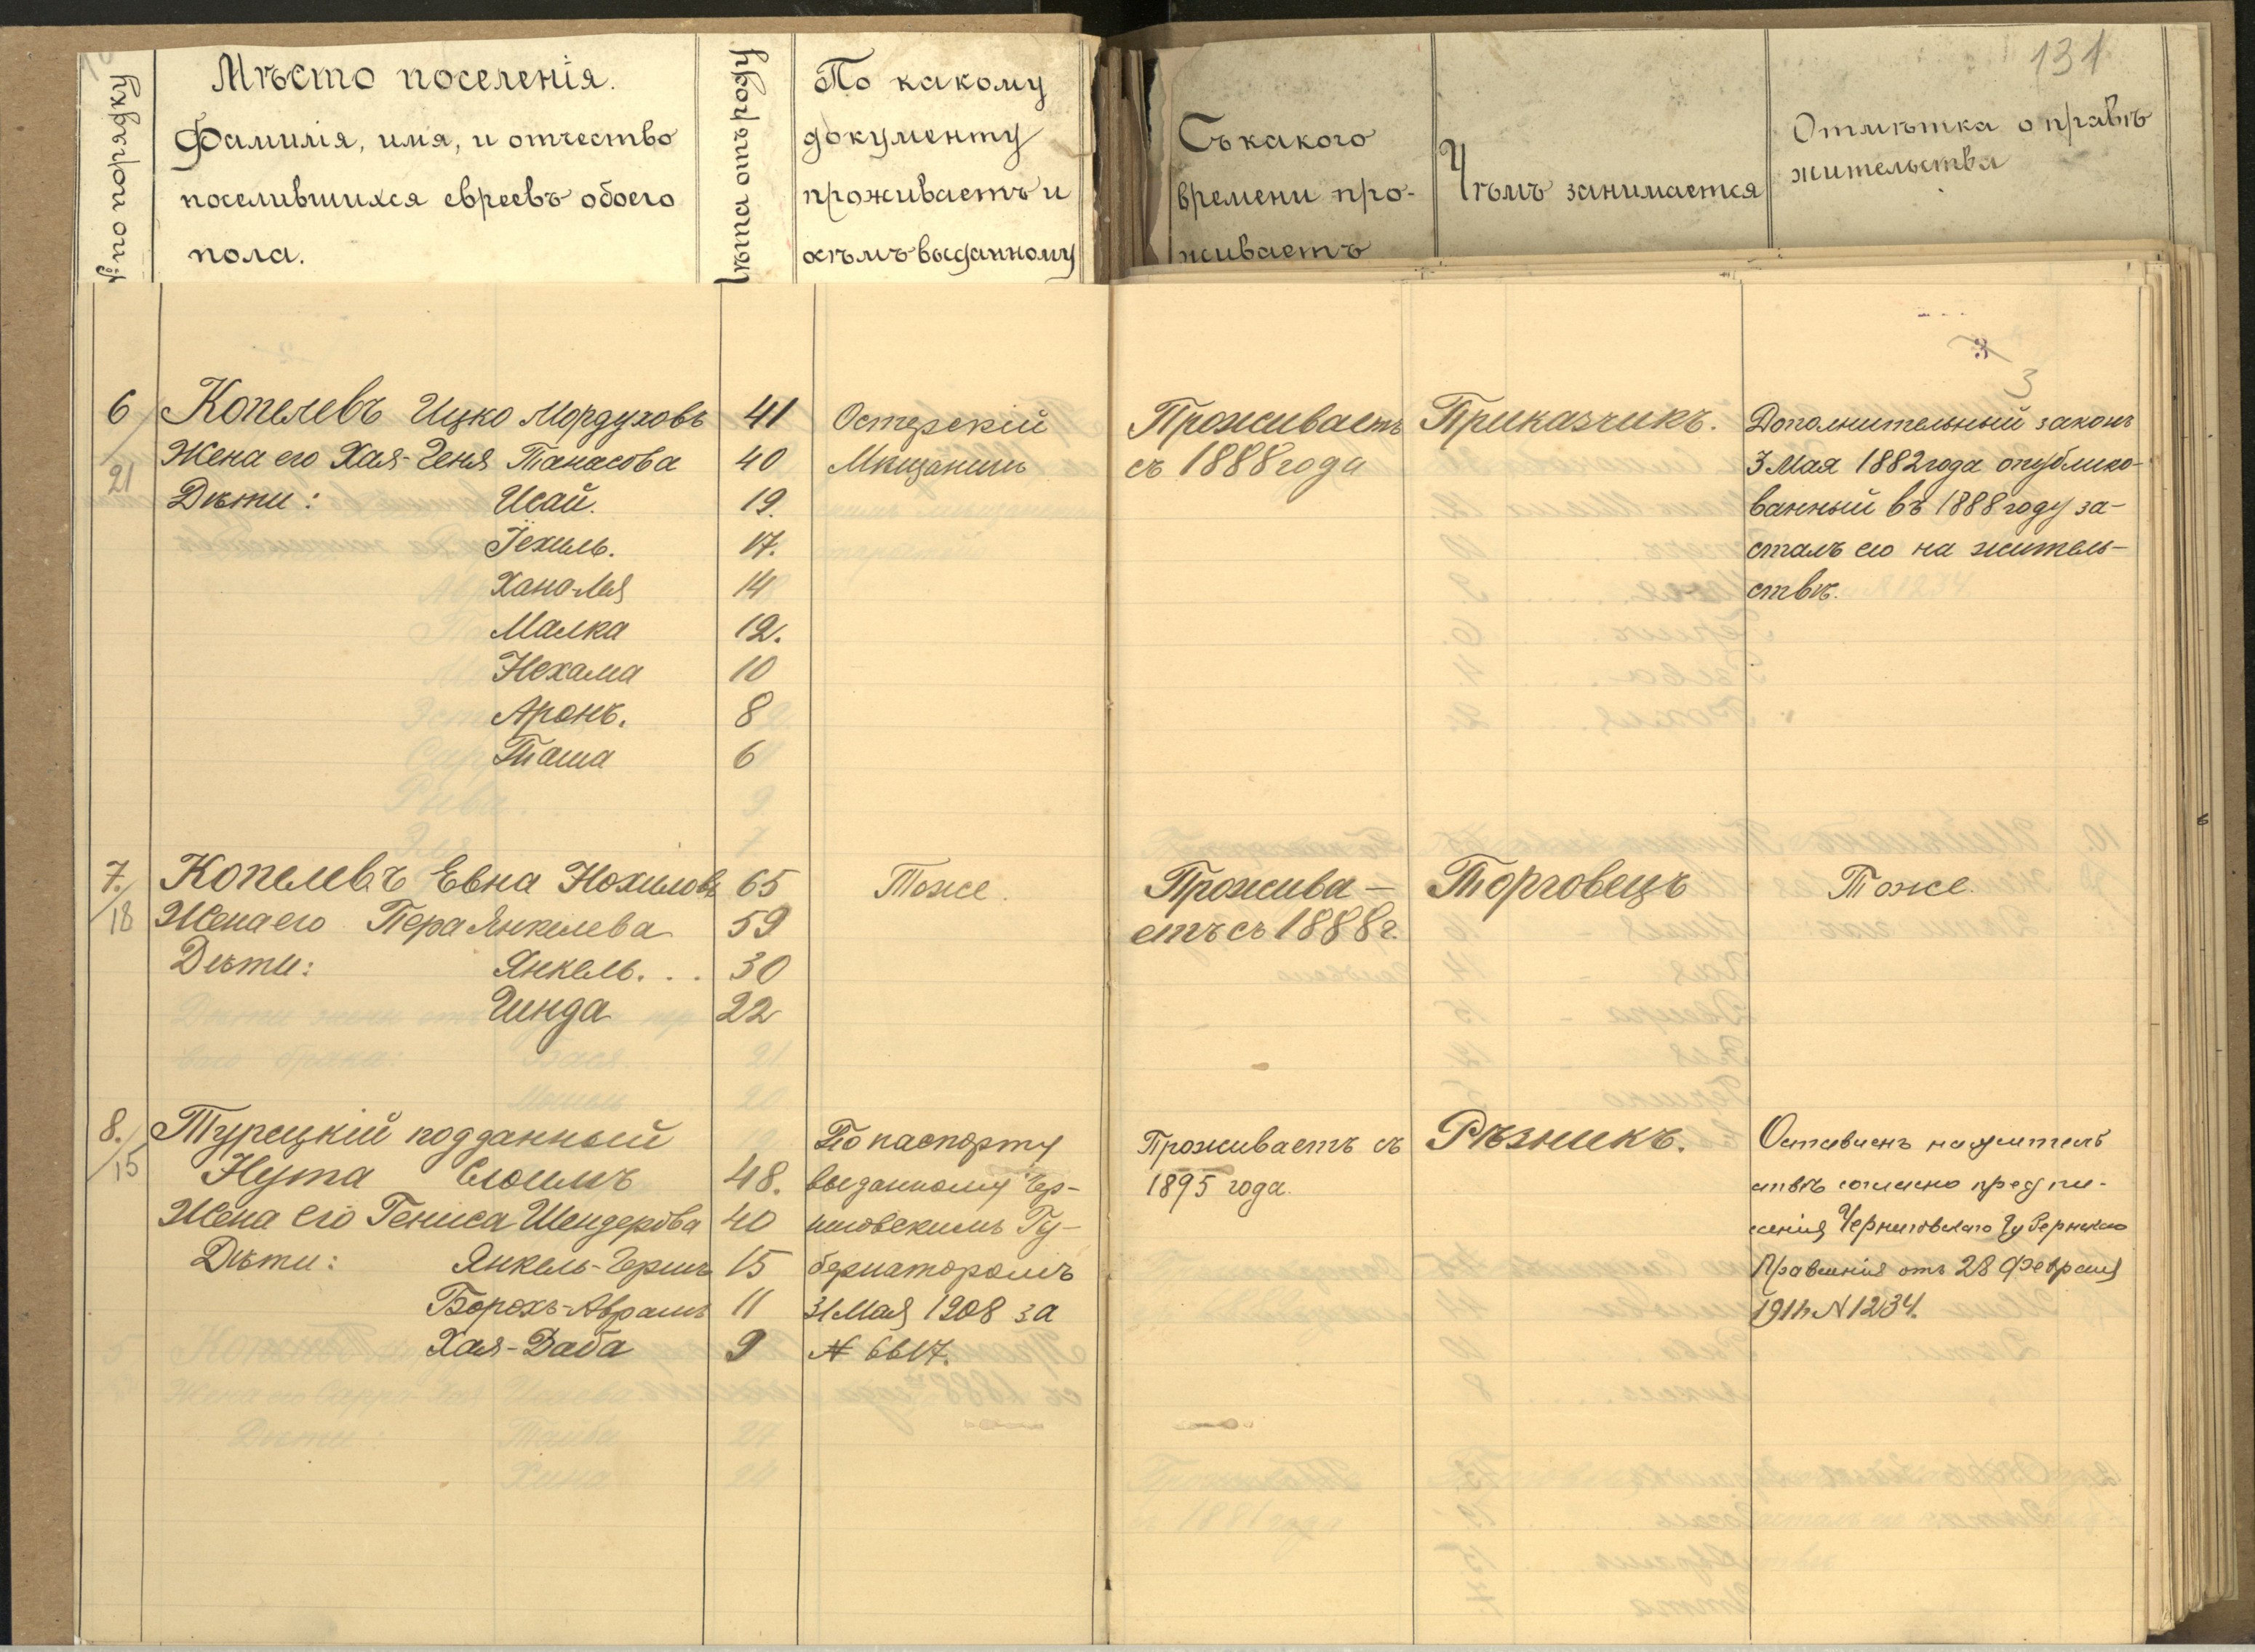 131
№ по порядку
Мѣсто поселенія.
Фамилія, имя, и отчество
поселившихся евреевъ обоего
пола.
Лѣта отъ роду
По какому
документу
проживаетъ и
кѣмъ выданному
Съ какого
времени про-
живаетъ
Чѣмъ занимается
Отмѣтка о правѣ
жительства
3
3
6
21
Копелевъ Ицко Мордуховъ
41
Жена его Хая-Геня Танасова
40
Дѣти: Исай.
19.
Іехиль.
17.
Хана-Лея
14
Малка
12.
Нехама
10
Аронъ.
8
Таша
6
Остерскій
Мѣщанинъ
Проживаетъ
съ 1888 года
Приказчикъ.
Дополнительный законъ
3 Мая 1882 года опублико-
ванный въ 1888 году за-
сталъ его на житель-
ствѣ.
7.
18
Копелевъ Евна Нохимовъ
65
Жена его Пера Янкелева
59
Дѣти: Янкель. . .
30
Гинда
22
Тоже.
Прожива-
етъ съ 1888 г.
Торговецъ
Тоже.
8.
15
Турецкій подданный
Нута Слоимъ
48.
Жена его Гениса Шендерова
40
Дѣти: Янкель-Гершъ
15
Борохъ-Абрамъ
11
Хая-Баба
9
По паспорту
выданному Чер-
ниговскимъ Гу-
бернаторомъ
31 Мая 1908 за
№ 6617.
Проживаетъ съ
1895 года.
Рѣзникъ.
Оставленъ на житель
ствѣ согласно предпи-
санія Черниговскаго Губернскаго
Правленія отъ 28 Февраля
1911 № 1234.